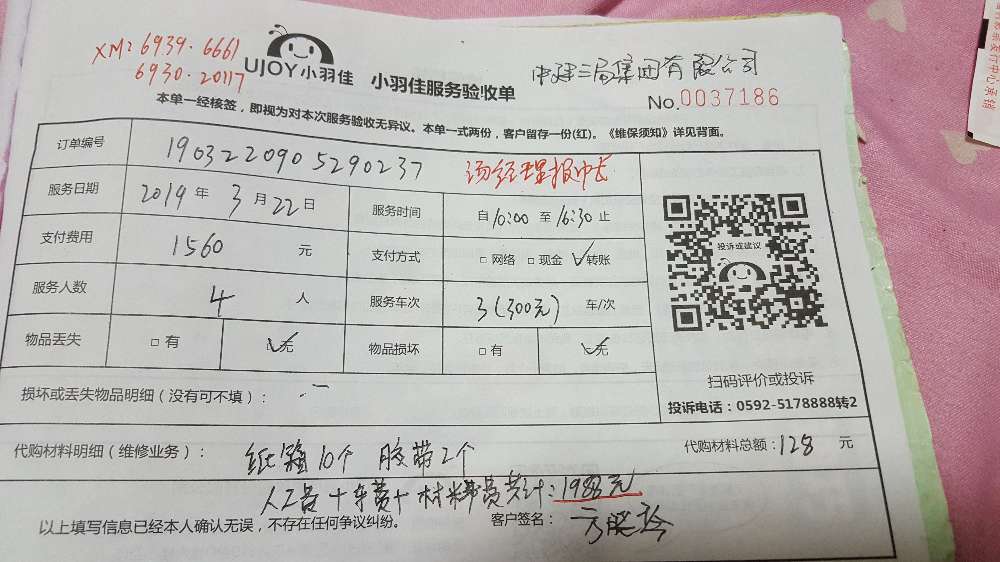 XM: 6939·6661
6930·20117
UJOY小羽佳
小羽佳服务验收单
中建三局集团有限公司
No.0037186
本单一经核签，即视为对本次服务验收无异议。本单一式两份，客户留存一份(红)。《维保须知》详见背面。
订单编号 1903220905290237
汤经理报冲长
服务日期 2019年3月22日 服务时间 自10:00至16:30止
投诉或建议
支付费用 1560 元 支付方式 □网络 □现金 ☑转账
服务人数 4 人 服务车次 3(300元) 车/次
物品丢失 □有 ☑无 物品损坏 □有 ☑无
扫码评价或投诉
投诉电话：0592-5178888转2
损坏或丢失物品明细（没有可不填）： —
代购材料明细（维修业务）： 纸箱10个 胶带2个
代购材料总额：128 元
人工费+车费+材料费共计：1988元
以上填写信息已经本人确认无误，不存在任何争议纠纷。 客户签名：